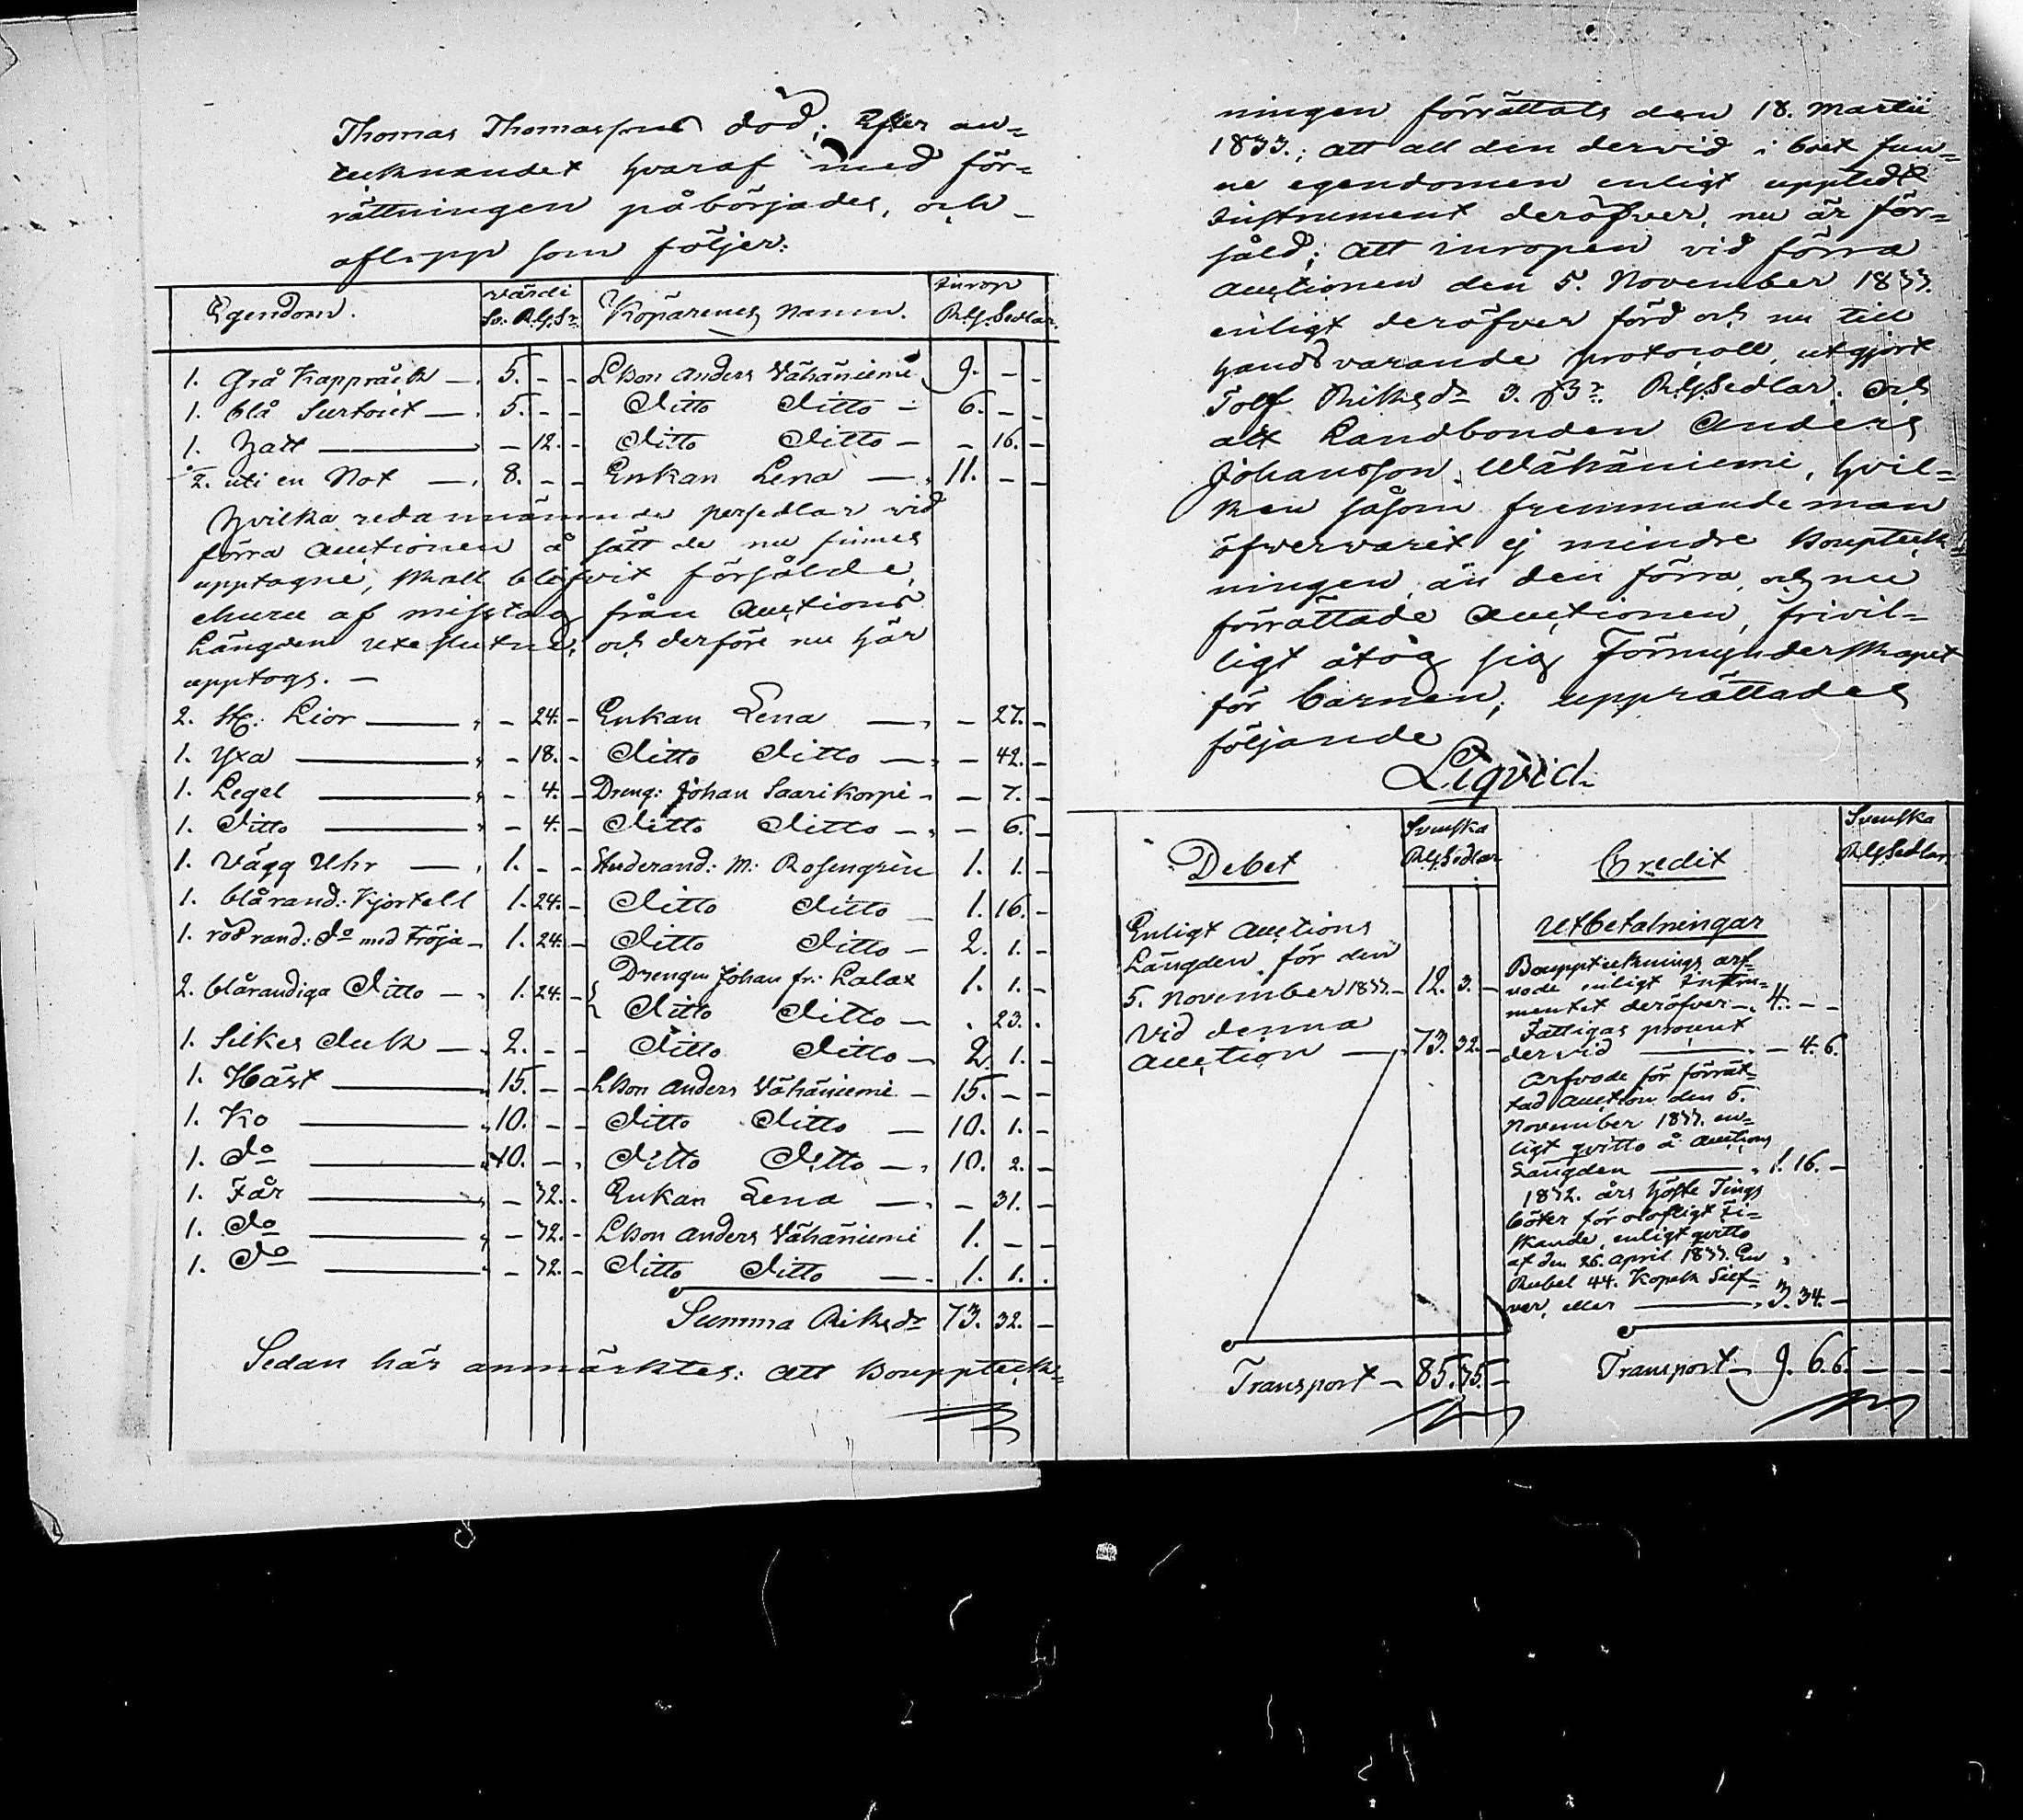 Thomas Thomassons död; Efter an=
tecknandet hvaraf med för=
rättningen påbörjades, och
aflopp som följer:
Egendom. | Värde Sv. R.G.Sr. | Köparenes Namn. | Inrop R.G.Sedlar.
1. Grå Kappråck — 5. - - LBon Anders Vähäniemi 9. - -
1. blå Surtout — 5. - - Ditto Ditto — 6. - -
1. Hatt — - 12. - Ditto Ditto — - 16. -
1/2. uti en Not — 8. - - Enkan Lena — 11. - -
Hvilka redannämnde persedlar vid
förra Auctionen å sätt de nu finnes
upptagne, skall blifvit försålde,
ehuru af misstag från Auctions
Längden uteslutne, och derföre nu här
upptogs. —
2. st: Lior — - 24. - Enkan Lena — - 27. -
1. Yxa — - 18. - Ditto Ditto — - 42. -
1. Legel — - 4. - Dreng: Johan Saarikorpi - - 7. -
1. Ditto — - 4. - Ditto Ditto — - 6. -
1. Vägg Uhr — 1. - - Studerand: M: Rosengrèn 1. 1. -
1. blårand: Kjortell 1. 24. - Ditto Ditto — 1. 16. -
1. rödrand: do med Tröja — 1. 24. - Ditto Ditto — 2. 1. -
2. blårandiga Ditto — 1. 24. - { Drengen Johan fr: Lalax 1. 1. -
Ditto Ditto — . 23. .
1. Silkes Duk — 2. - - Ditto Ditto — 2. 1. -
1. Häst — 15. - - LBon Anders Vähäniemi — 15. - -
1. Ko — 10. - - Ditto Ditto — 10. 1. -
1. do — 10. - - Ditto Ditto — 10. 2. -
1. Får — - 32. - Enkan Lena — - 31. -
1. do — - 32. - LBon Anders Vähäniemi 1. - -
1. do — - 32. - Ditto Ditto — 1. 1. .
Summa Riksdr 73. 32. -
Sedan här anmärktes: att Bouppteck=
ningen förrättats den 18. Martii
1833.; att all den dervid i boet fun=
ne egendomen enligt uppledt
Instrument deröfver, nu är för=
såld; att inropen vid förra
Auctionen den 5. November 1833.
enligt deröfver förd och nu till
hands varande protocoll, utgjort
Tolf Riksdr 3. R.G.Sedlar; och
att Landbonden Anders
Johansson Wähäniemi, hvil=
ken såsom fremmande man
öfvervarit ej mindre Bouppteck=
ningen, än den förra och nu
förrättade Auctionen, frivil=
ligt åtog sig Förmynderskapet
för barnen; upprättades
följande
Liqvid.
Debet | Svenska R.G.Sedlar
Enligt Auctions
Längden för den
5. November 1833. — 12. 3. -
Vid denna
Auction — 73. 32. -
Transport — 85. 35. -
Credit | Svenska R.G.Sedlar
Utbetalningar
Bouppteknings arf=
vode enligt Instru=
mentet deröfver — 4. - -
Fattigas procent
dervid — - 4. 6.
Arfvode för förrät=
tad Auction den 5.
November 1833. en=
ligt qvitto å Auctions
Längden — 1. 16. -
1832. års Höste Tings
böter för olofligt Fi=
skande, enligt qvitto
af den 26. April 1833. En
Rubel 44. Kopek Silf=
ver, eller — 3. 34. -
Transport — 9. 6. 6. - - -